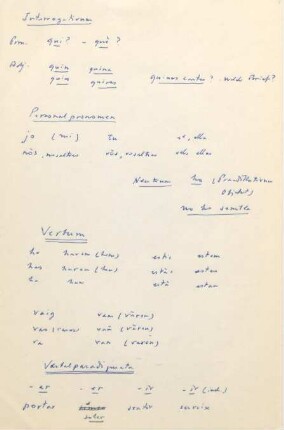 Interrogativum
Pron. qui? – què?
Adj. quin quina
quins quines Quines cartes? welche Briefe?
Personalpronomen
jo (mi) tu ell, ella
nós, nosaltres vós, vosaltres ells elles
Neutrum ho (Prädikativum
Objekt)
no ho sembla
Verbum
he havem (hem) estic estem
has haveu (heu) estàs estau
ha han està estan
vaig vam (vàrem)
vas vau (vàreu)
va van (varen)
Verbalparadigmata
– ar – er – ir – ir (inch.)
portar sentir servir